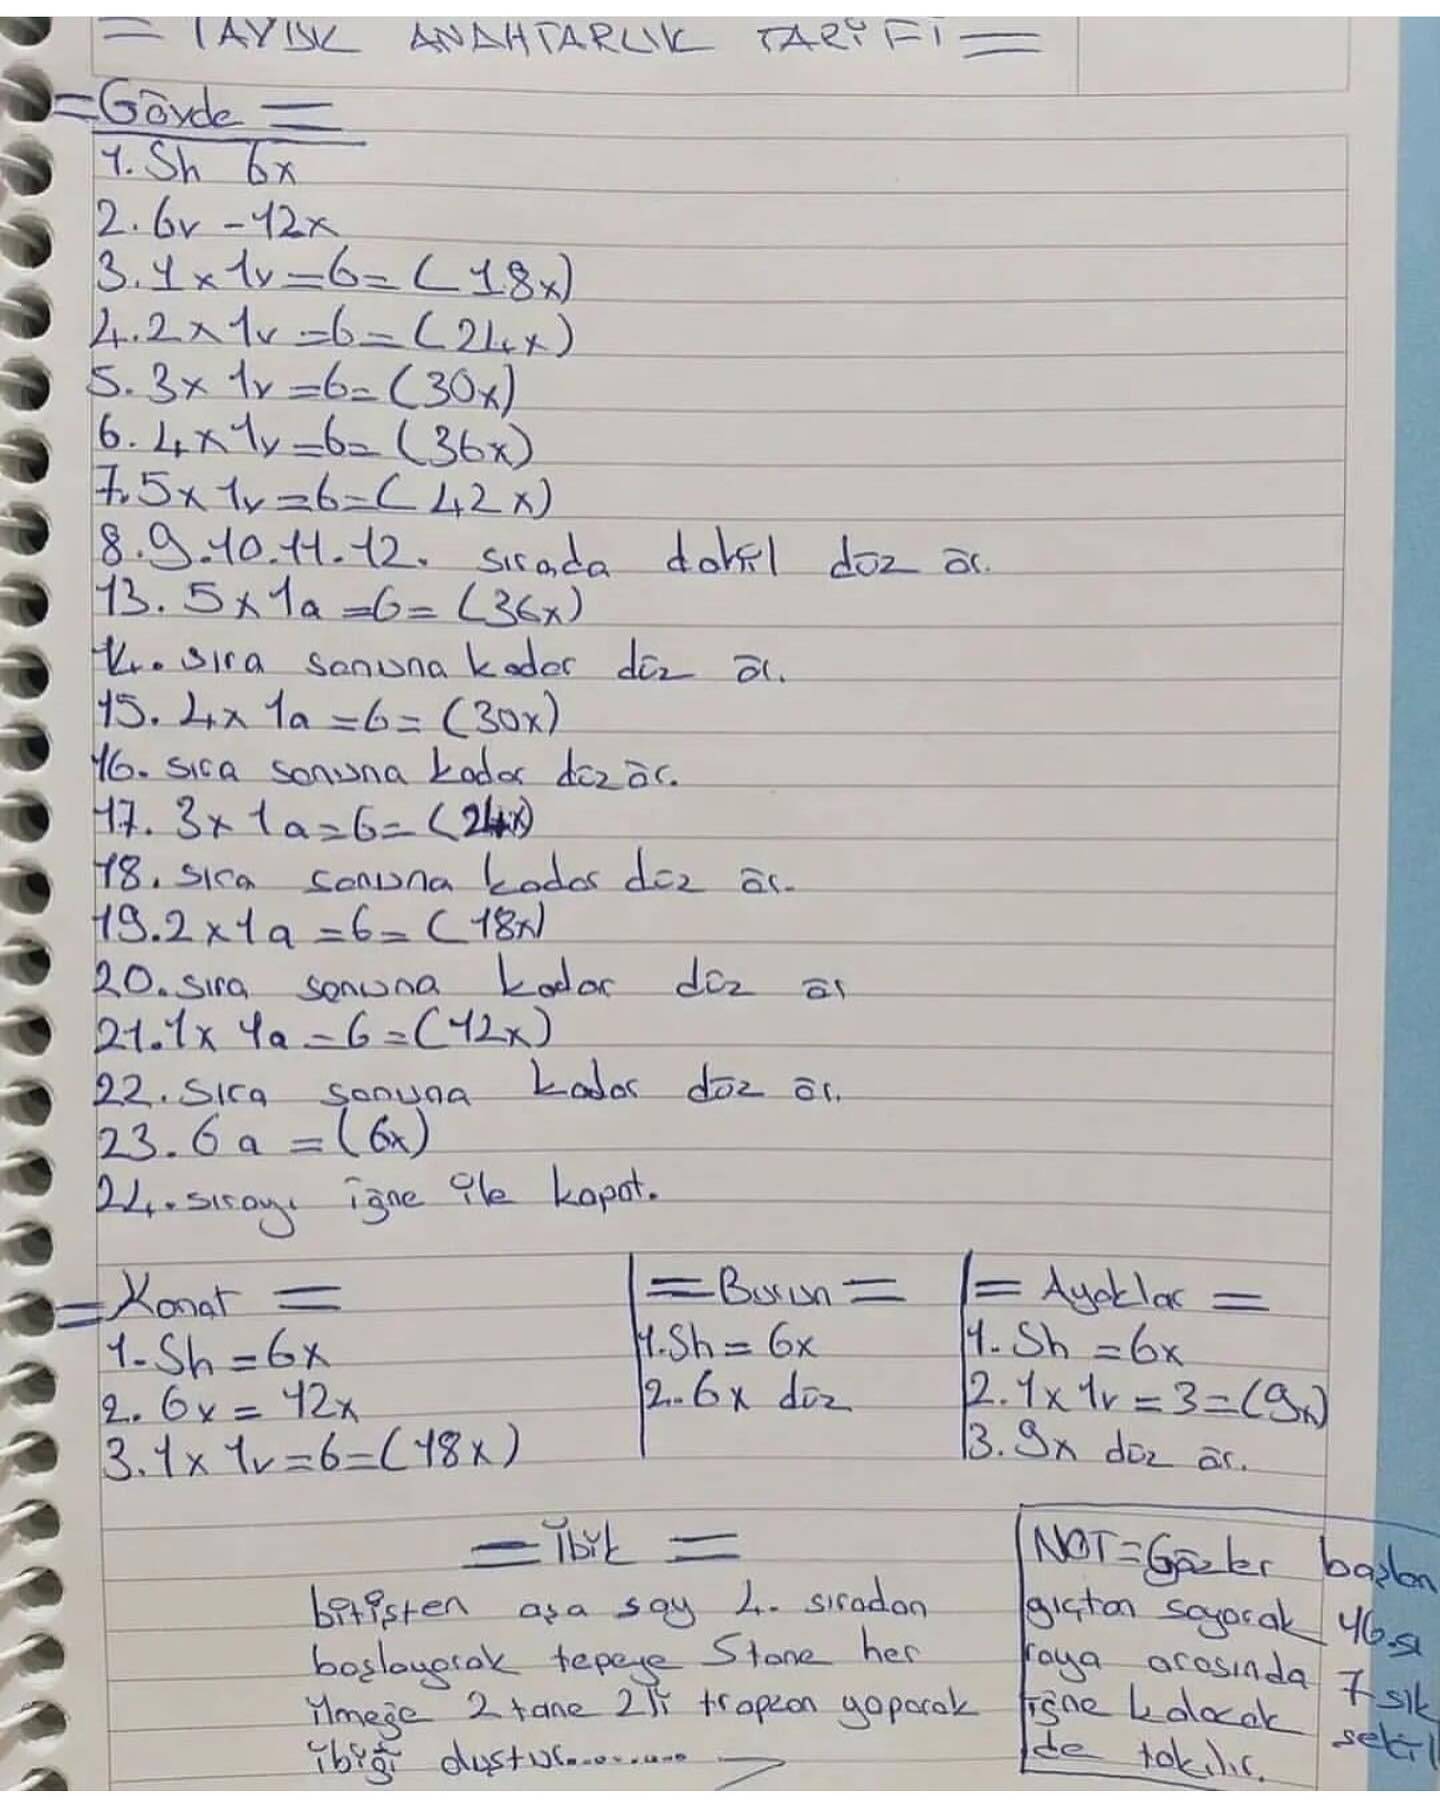 = TAVUK ANAHTARLIK TARİFİ =
= Gövde =
1. Sh 6x
2. 6v - 12x
3. 1x 1v = 6 = (18x)
4. 2x 1v = 6 = (24x)
5. 3x 1v = 6 = (30x)
6. 4x 1v = 6 = (36x)
7. 5x 1v = 6 = (42x)
8.9.10.11.12. sırada dahil düz ör.
13. 5x 1a = 6 = (36x)
14. sıra sonuna kadar düz ör.
15. 4x 1a = 6 = (30x)
16. sıra sonuna kadar düz ör.
17. 3x 1a = 6 = (24x)
18. sıra sonuna kadar düz ör.
19. 2x 1a = 6 = (18x)
20. sıra sonuna kadar düz ör
21. 1x 1a = 6 = (12x)
22. sıra sonuna kadar düz ör.
23. 6a = (6x)
24. sırayı iğne ile kapat.
= Kanat =
1- Sh = 6x
2. 6v = 12x
3. 1x 1v = 6 = (18x)
= Burun =
1. Sh = 6x
2. 6x düz
= Ayaklar =
1. Sh = 6x
2. 1x 1v = 3 = (9x)
3. 9x düz ör.
= İbik =
bitişten aşa say 4. sıradan
başlayarak tepeye 5 tane her
ilmeğe 2 tane 2li trabzan yaparak
ibiği oluştur.........
NOT = Gözler başlan
gıçtan sayarak 16. sı
raya arasında 7 sık
iğne kalacak şekil
de takılır.